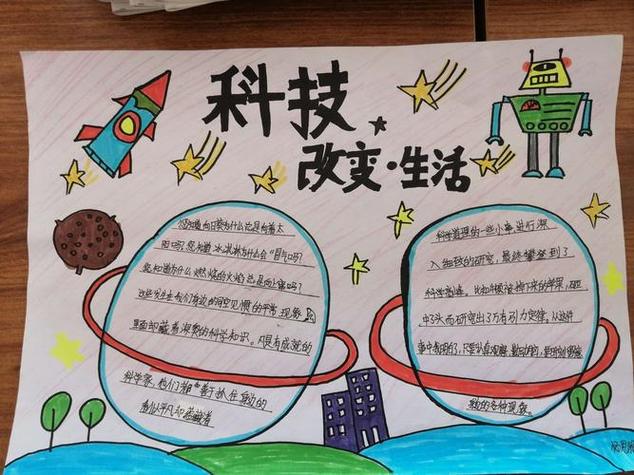 科技
改变·生活
您知道向日葵为什么总是向着太
阳吗?您知道冰淇淋为什么会"冒气"吗?
您知道为什么燃烧的火焰总是向上窜吗?
这些发生在我们身边的司空见惯的平常现象
里面却藏着深奥的科学知识。凡是有成就的
科学家,他们都善于抓住身边的
看似平凡却蕴藏着
科学道理的一些小事进行深
入细致的研究,最终攀登到了
科学高峰。比如牛顿被掉下来的苹果,砸
中了头而研究出了万有引力定律。从这件
事中我明白了,只要认真观察,
的各种现象